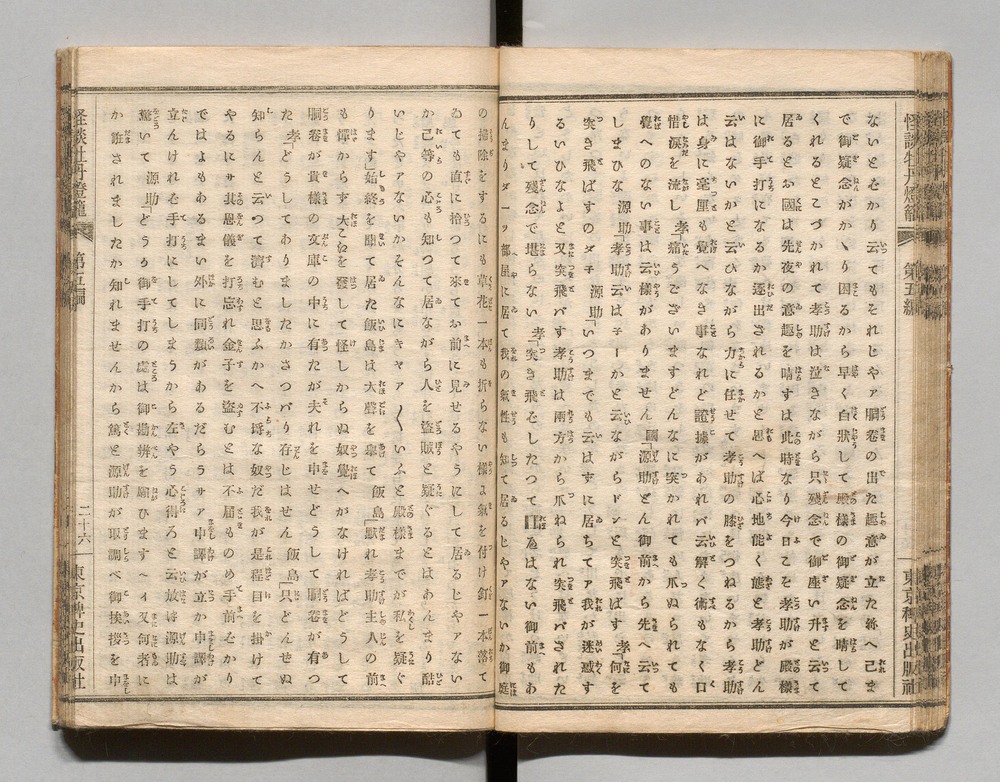 怪談牡丹燈籠 第五編 東京稗史出版社
ないと斗り云てもそれじやァ胴巻の出た趣意が立た袮へ己ま
で御疑念がかゝり困るから早く白状して殿様の御疑念を晴して
くれるとこづかれて孝助は泣きながら只残念で御座い升と云て
居るとお國は先夜の意趣を晴すは此時なり今日こそ孝助が殿様
に御手打になるか逐出されるかと思へば心地能く態と孝助どん
云はないかと云ひながら力に任せて孝助の膝をつねるから孝助
は身に毫厘も覺へなき事なれど證據があれバ云解く術もなく口
惜涙を流し 孝「痛うございますどんなに突かれても爪ぬられても
覺へのない事は云様がありません 國「源助どん御前から先へ云て
しまひな 源助「孝助云はネーかと云ながらドンと突飛ばす 孝「何を
突き飛ばすのダチ 源助「いつまでも云はずに居ちてア我が迷惑す
るいひなよと又突飛バす孝助は兩方から爪ねられ突飛バされた
りして残念で堪らない 孝「突き飛をしたつて覺ゑはない御前もあ
んまりダー一部屋に居て我の氣性も知て居るじやァないか御庭
の掃除をするにも草花一本も折らない様よ氣を付け釘一本落て
ゐても直に拾つて來てお前に見せるやうにして居るじやァない
か己等の心も知つて居ながら人を盗賊と疑ぐるとはあんまり酷
いじやァないかそんなにキャア〱いふと殿様までが私を疑ぐ
ります」始終を聽て居た飯島は大聲を擧て 飯島「黙れ孝助主人の前
も憚からず大ごゑを發して怪しからぬ奴覺へがなければどうして
胴巻が貴様の文庫の中に有たが夫れを申せどうして胴巻が有つ
た 孝「どうしてありましたかさつパり存じはせん 飯島「只どんせぬ
知らんと云つて濟むと思ふかへ不埒な奴だ我が是程目を掛けて
やるにサ其恩儀を打忘れ金子を盗むとは不届ものめ手前をかり
ではよもあるまい外に同類があるだらうサァ申譯が立か申譯が
立んけれを手打にしてしまうから左やう心得ろと云放は源助は
驚いて 源助「どうり御手打の處は御勘辨を願ひますヘイ又何者に
か誑されましたか知れませんから篤と源助が取調べ御挨拶を申
怪談牡丹燈籠 第五編 二十六 東京稗史出版社